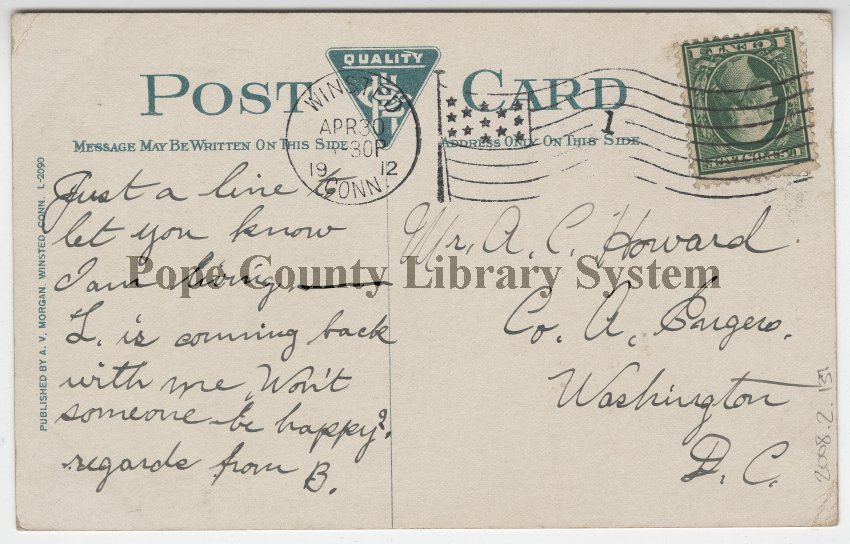 QUALITY
POST CARD
MESSAGE MAY BE WRITTEN ON THIS SIDE
ADDRESS ONLY ON THIS SIDE
WINSTED
APR 30
30P
19 12
CONN.
1
Just a line to
let you know
I am living
L. is coming back
with me. Won't
someone be happy?
regards from B.
Mr. A. C. Howard
Co. A, Engers.
Washington
D. C.
PUBLISHED BY A. V. MORGAN, WINSTED, CONN. L-2090
Pope County Library System
2008.2.131